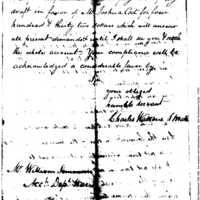 draft in favor of Mr Joshua Cit for four
hundred & thirty two dollars which will answer
all present demands until I shall see you & settle
the whole account. Your compliance will be
acknowledged a considerable favor by
Sir
your obliged
humble servant
Charles
Mr William Simmons
Acct. Dept. War